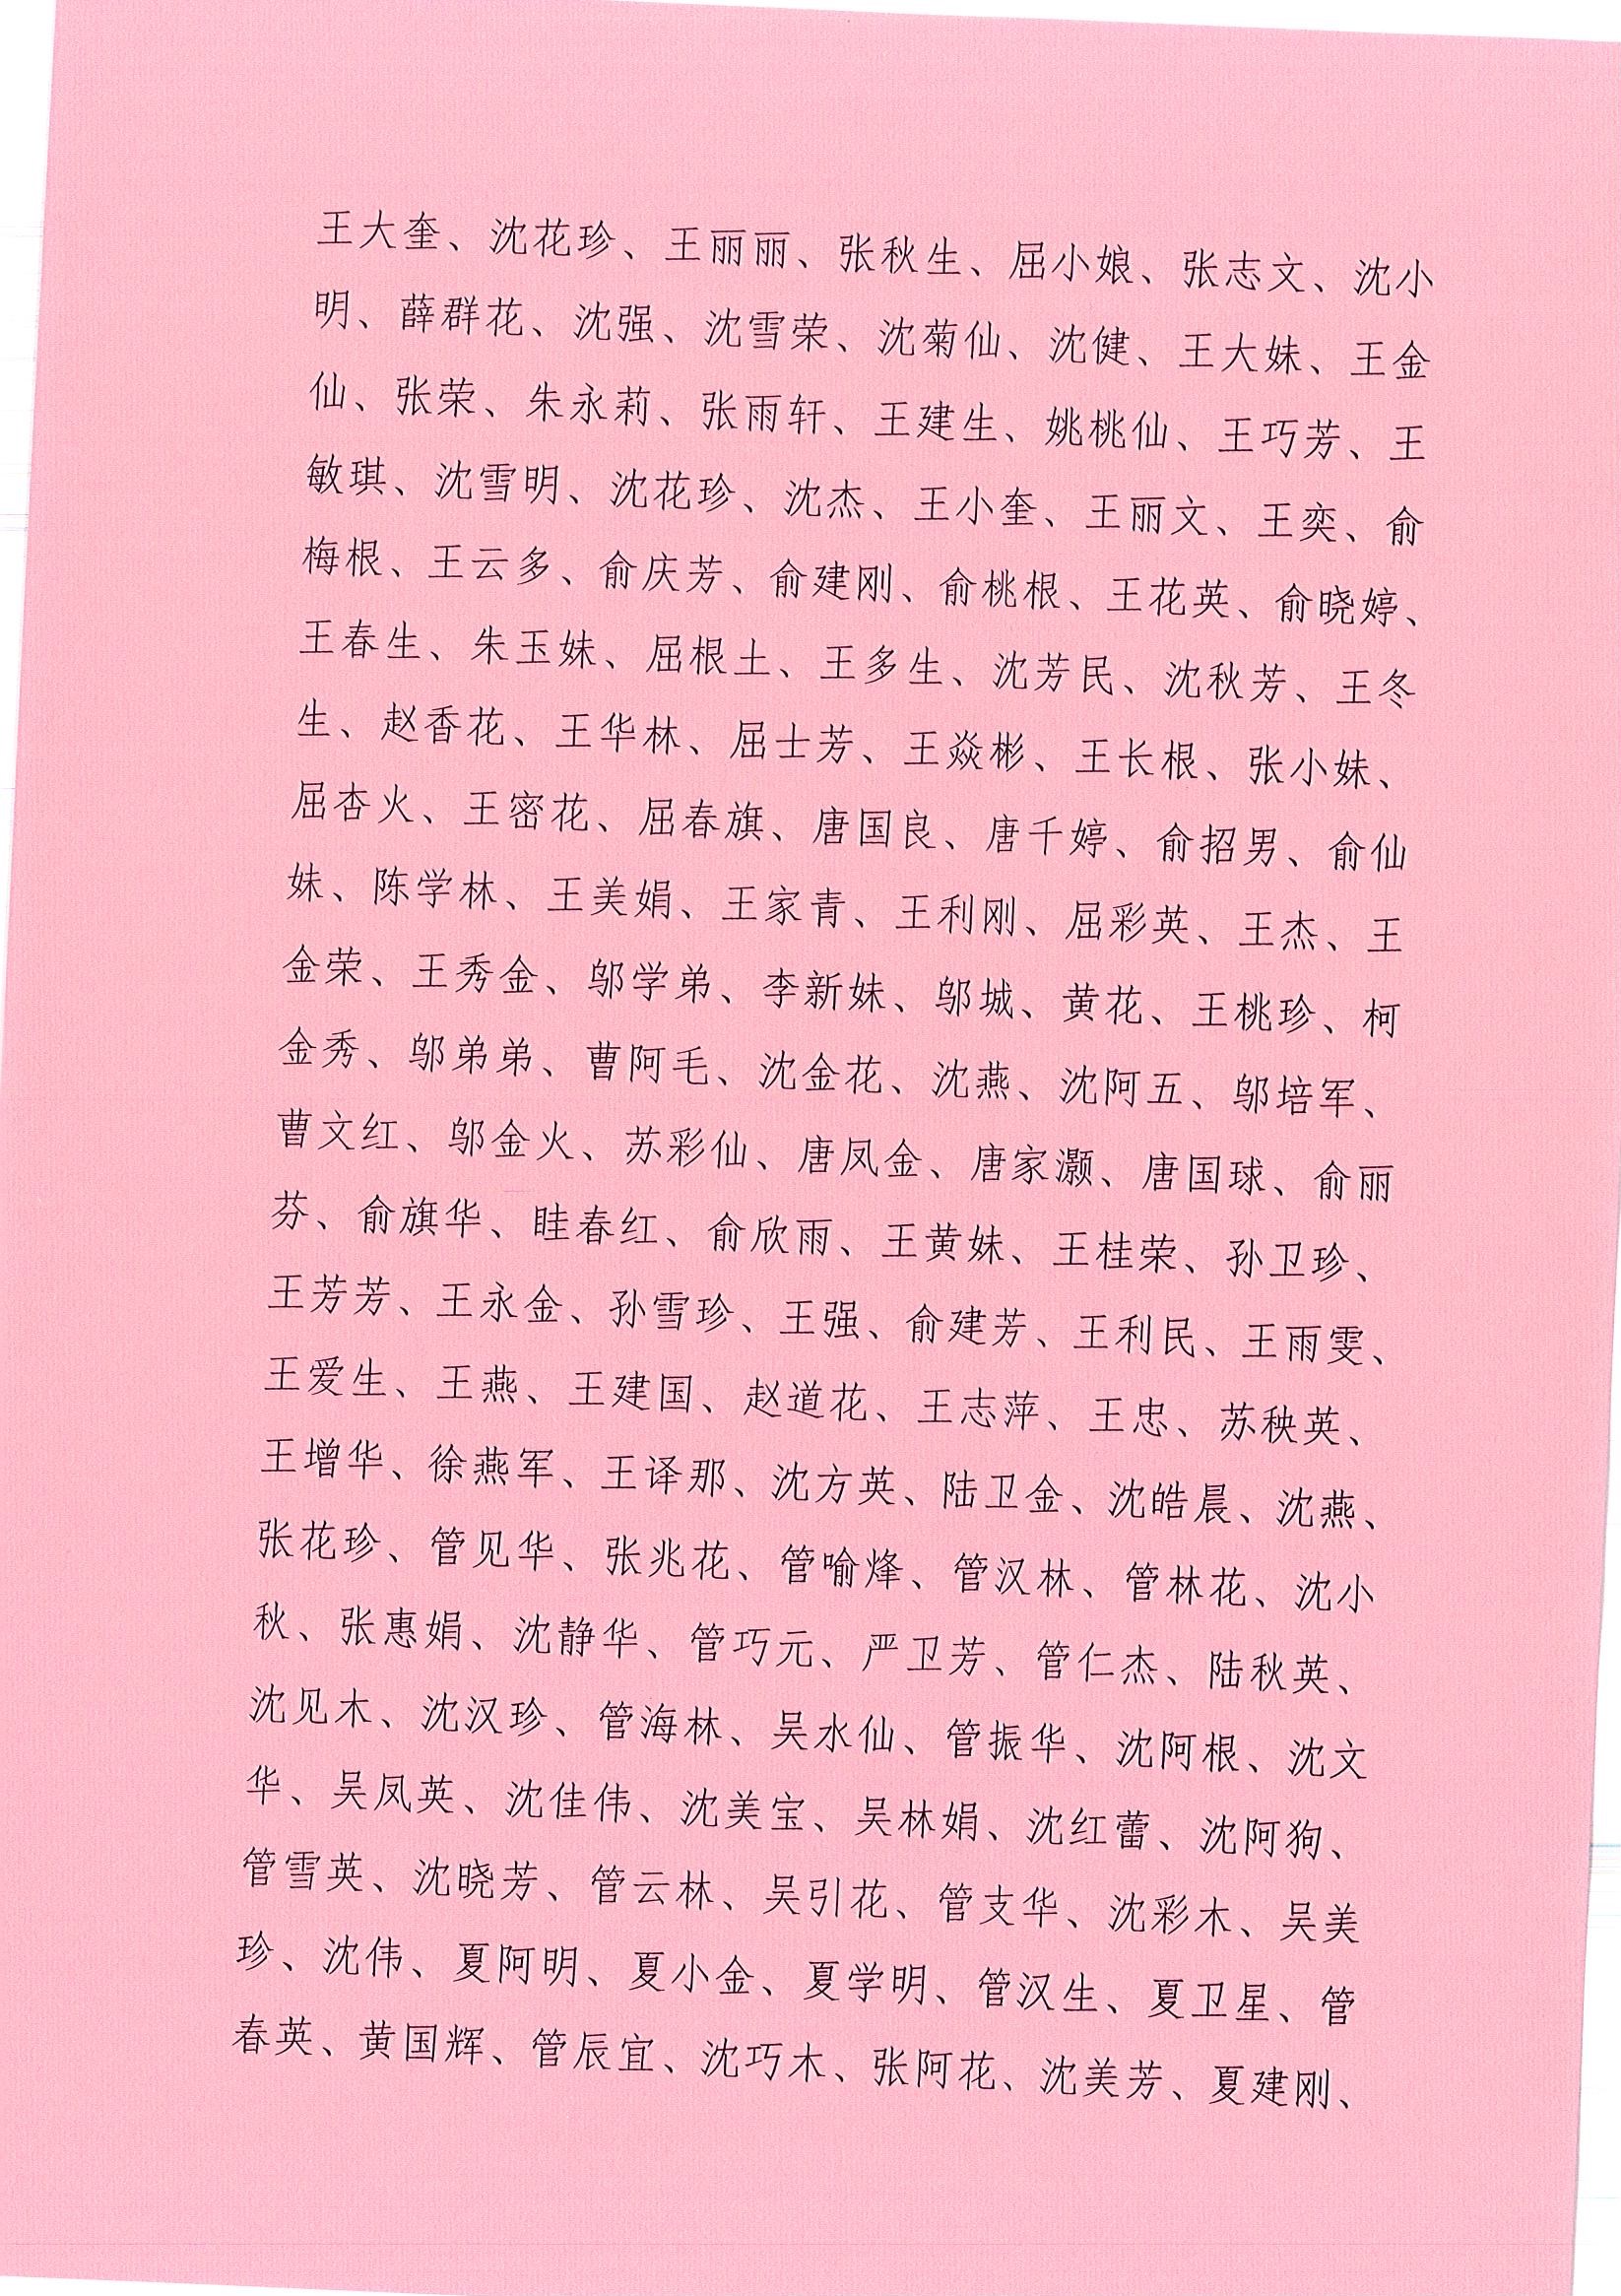 王大奎、沈花珍、王丽丽、张秋生、屈小娘、张志文、沈小
明、薛群花、沈强、沈雪荣、沈菊仙、沈健、王大妹、王金
仙、张荣、朱永莉、张雨轩、王建生、姚桃仙、王巧芳、王
敏琪、沈雪明、沈花珍、沈杰、王小奎、王丽文、王奕、俞
梅根、王云多、俞庆芳、俞建刚、俞桃根、王花英、俞晓婷、
王春生、朱玉妹、屈根土、王多生、沈芳民、沈秋芳、王冬
生、赵香花、王华林、屈士芳、王焱彬、王长根、张小妹、
屈杏火、王密花、屈春旗、唐国良、唐千婷、俞招男、俞仙
妹、陈学林、王美娟、王家青、王利刚、屈彩英、王杰、王
金荣、王秀金、邬学弟、李新妹、邬城、黄花、王桃珍、柯
金秀、邬弟弟、曹阿毛、沈金花、沈燕、沈阿五、邬培军、
曹文红、邬金火、苏彩仙、唐凤金、唐家灏、唐国球、俞丽
芬、俞旗华、眭春红、俞欣雨、王黄妹、王桂荣、孙卫珍、
王芳芳、王永金、孙雪珍、王强、俞建芳、王利民、王雨雯、
王爱生、王燕、王建国、赵道花、王志萍、王忠、苏秧英、
王增华、徐燕军、王译那、沈方英、陆卫金、沈皓晨、沈燕、
张花珍、管见华、张兆花、管喻烽、管汉林、管林花、沈小
秋、张惠娟、沈静华、管巧元、严卫芳、管仁杰、陆秋英、
沈见木、沈汉珍、管海林、吴水仙、管振华、沈阿根、沈文
华、吴凤英、沈佳伟、沈美宝、吴林娟、沈红蕾、沈阿狗、
管雪英、沈晓芳、管云林、吴引花、管支华、沈彩木、吴美
珍、沈伟、夏阿明、夏小金、夏学明、管汉生、夏卫星、管
春英、黄国辉、管辰宜、沈巧木、张阿花、沈美芳、夏建刚、